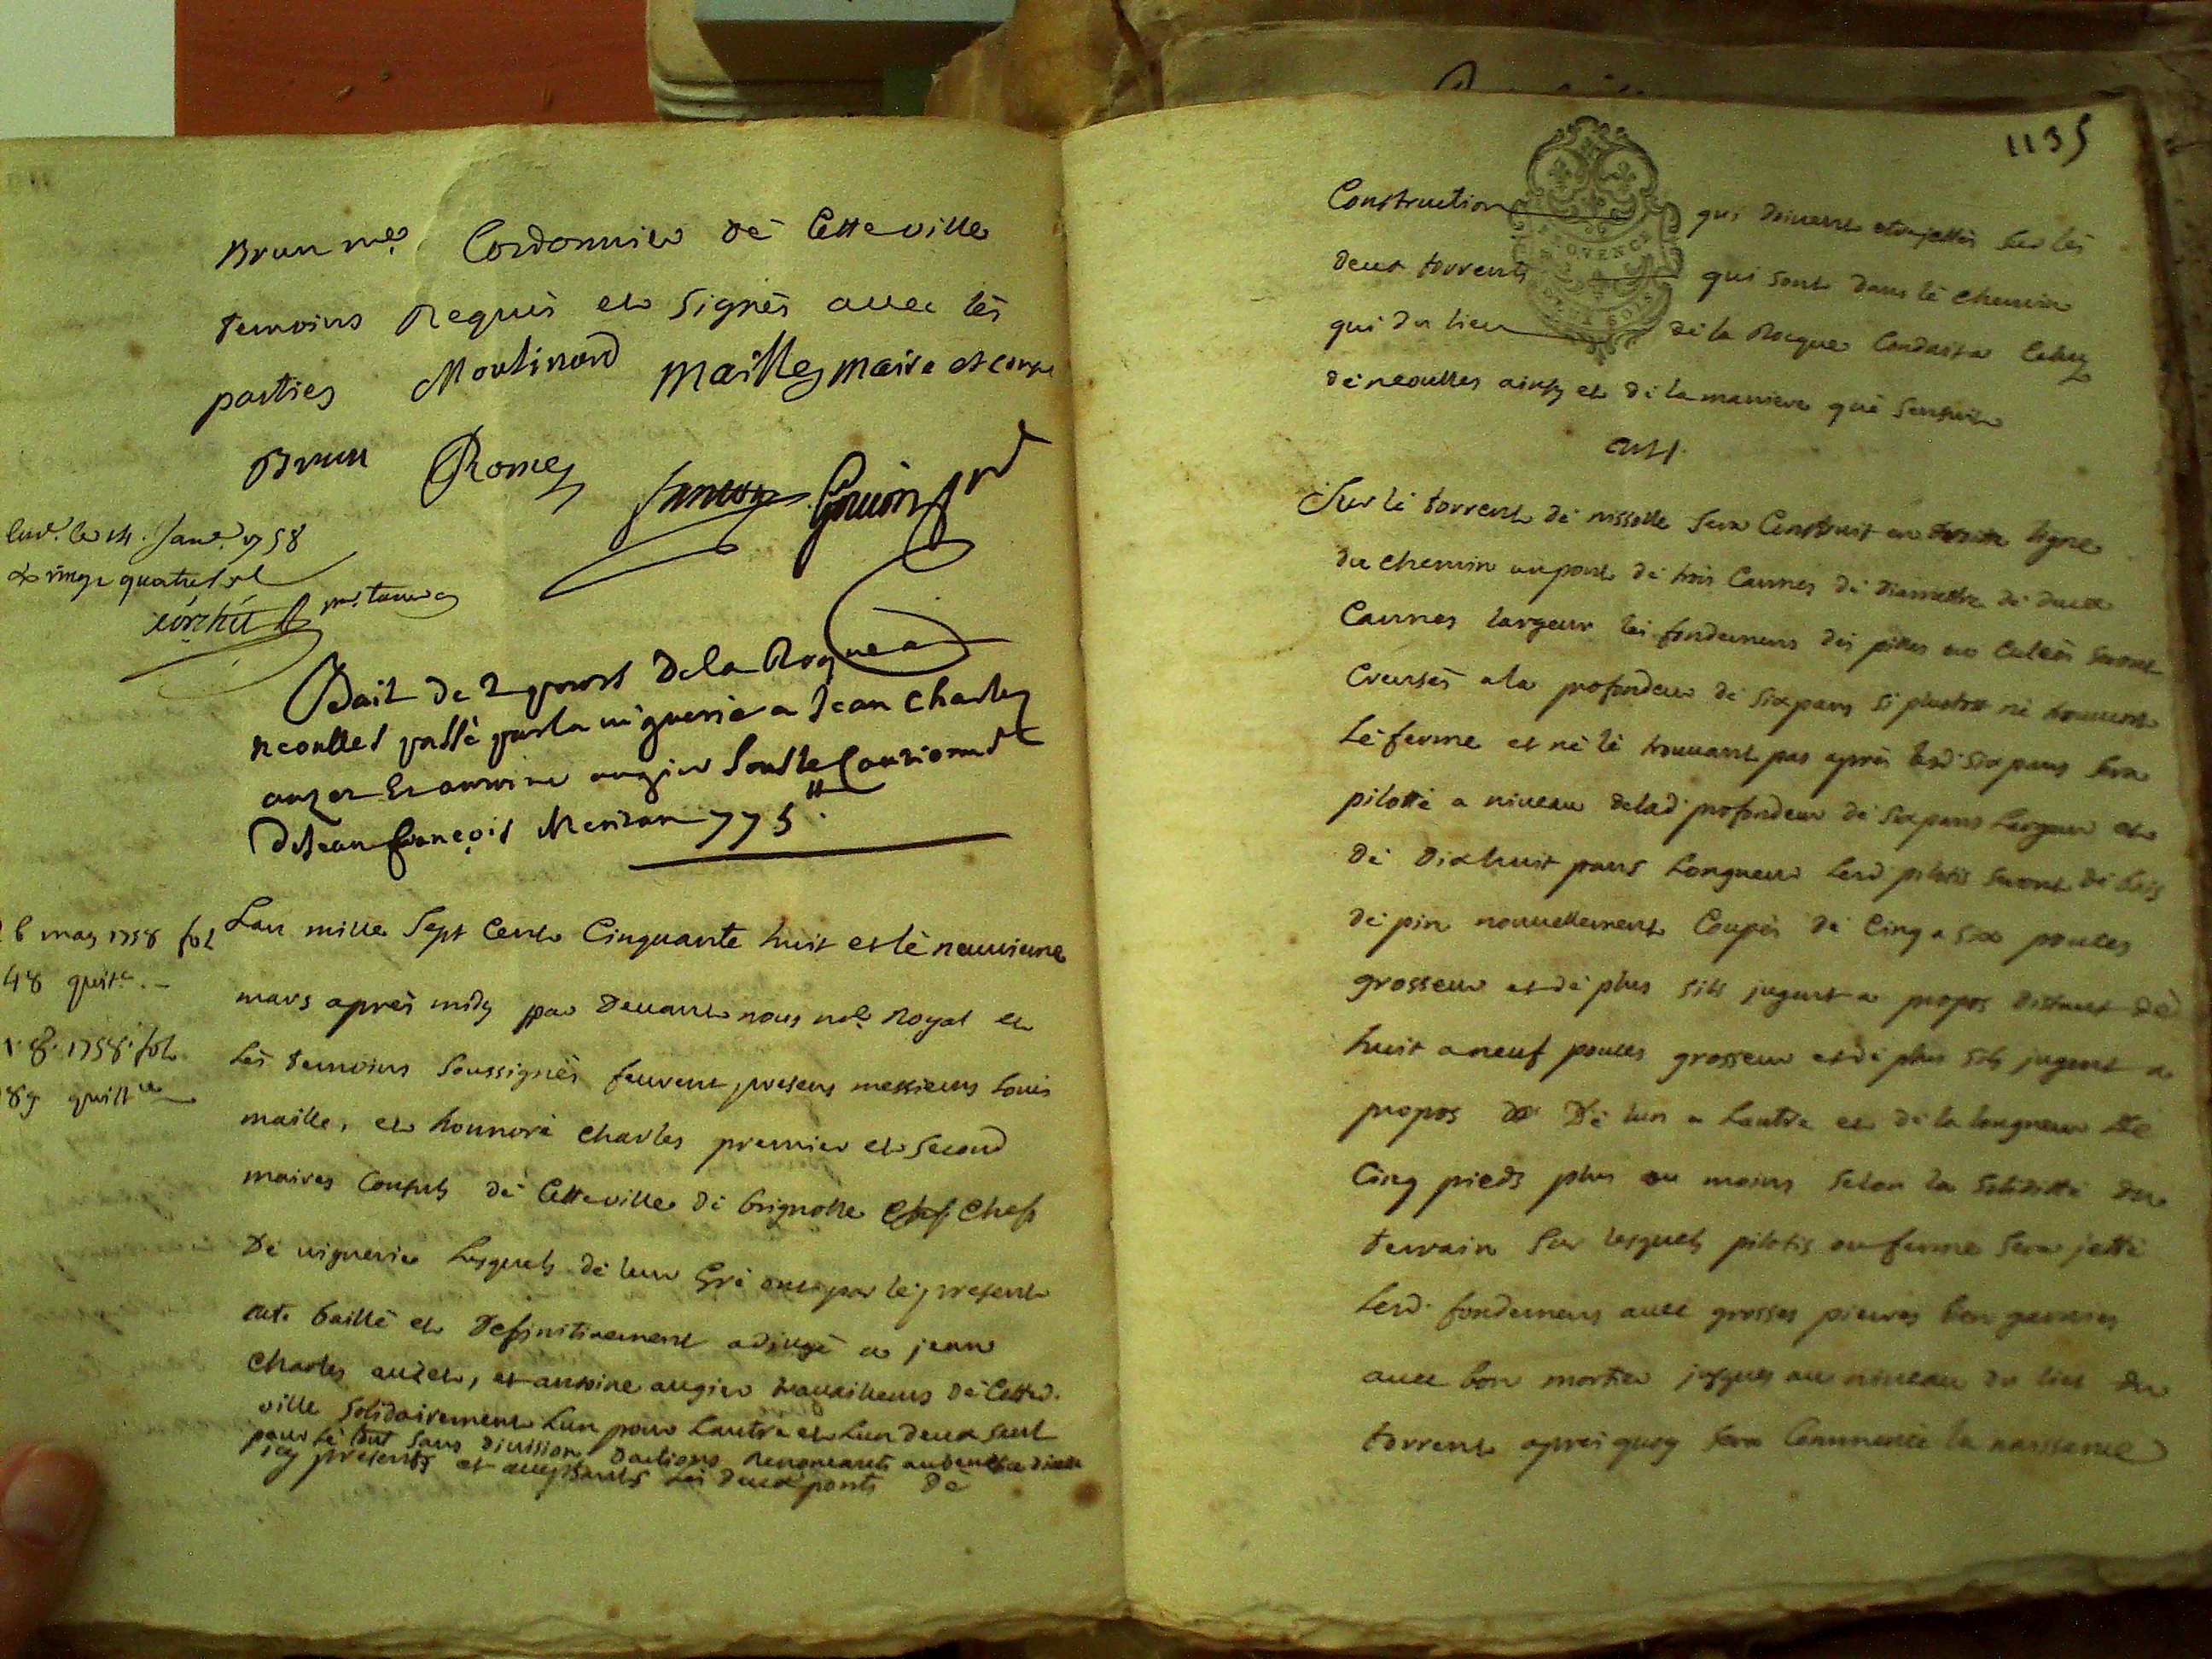 Brun me Cordonnier dé Cetteville
temoins Requis et Signés avec lés
parties Moutinard Maille maire et consul
Brun Romey Gouin
le 14. Janv. 1758
vingt quatre
Bait de 2 ponts de la Roque a
neoulles passé par la viguerie a Jean Charles
auzet et antoine augier Sous le Cautionnt
de Jean françois 775ll.
Lan mille Sept Cent Cinquante huit et lé neuvieme
6 may 1758 fol
48 quitce.
mars aprés midy par Devant nous nore Royal et
1. 8. 1758. fol
89 quittce
lés temoins Soussignés feurent presens messieurs Louis
maille, et honnoré Charles premier et Second
maires Consuls dé Cetteville dé brignolle Chef
Dé viguerie Lesquels dé leur Gré ont par lé present
acte baillé et Definitivement adjugé a jean
Charles auzet, et antoine augier travailleurs dé Cetted.
ville Solidairement Lun pour Lautre et Lun deux Seul
pour lé tout Sans division Dactions Renonceants au benefice
icy presents et acceptants Lés Deux ponts Dé
1135
PROVENCE
DEUX SOLS
Construction qui doivent etre jettés Sur lés
deux torrents qui sont dans lé chemin
qui du lieu dé la Rocque Conduit a Celuy
dé neoulles ainsy et dé la maniere qué Sensuit
art 1.
Sur lé torrent dé nissolle Sera Construit en droitte ligne
du chemin un pont dé trois Cannes dé diamettre dé deux
Cannes largeur lés fondemens dés pilles ou culées seront
Creusés a la profondeur dé six pans si plustot né trouvent
Lé ferme et né lé trouvant pas aprés lesd. six pans Sera
pilotté a niveau delad. profondeur dé six pans Largeur et
dé Dixhuit pans Longueur Lesd pilotis seront dé bois
dé pin nouvellement Coupés dé Cinq a six pouces
grosseur et dé plus sils jugent a propos distant dé
huit a neuf pouces grosseur et dé plus sils jugent a
propos Dé lun a Lautre et dé la longueur dé
Cinq pieds plus ou moins Selon la Soliditté du
terrain Sur lesquels pilotis ou ferme Sera jetté
Lesd. fondemens avec grosses pierres bien garnies
avec bon mortier jusques au niveau du lict du
torrent aprés quoy Sera Commencé la naissance